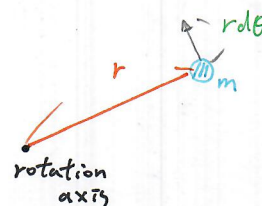 rdθ
r
m
rotation
axis